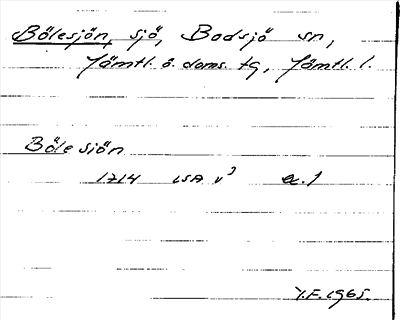 Bölesjön, sjö, Bodsjö sn,
Jämtl. ö. doms. tg, Jämtl. l.
Böle siön
1714 LSA v³ a. 1
Y.F. 1965.